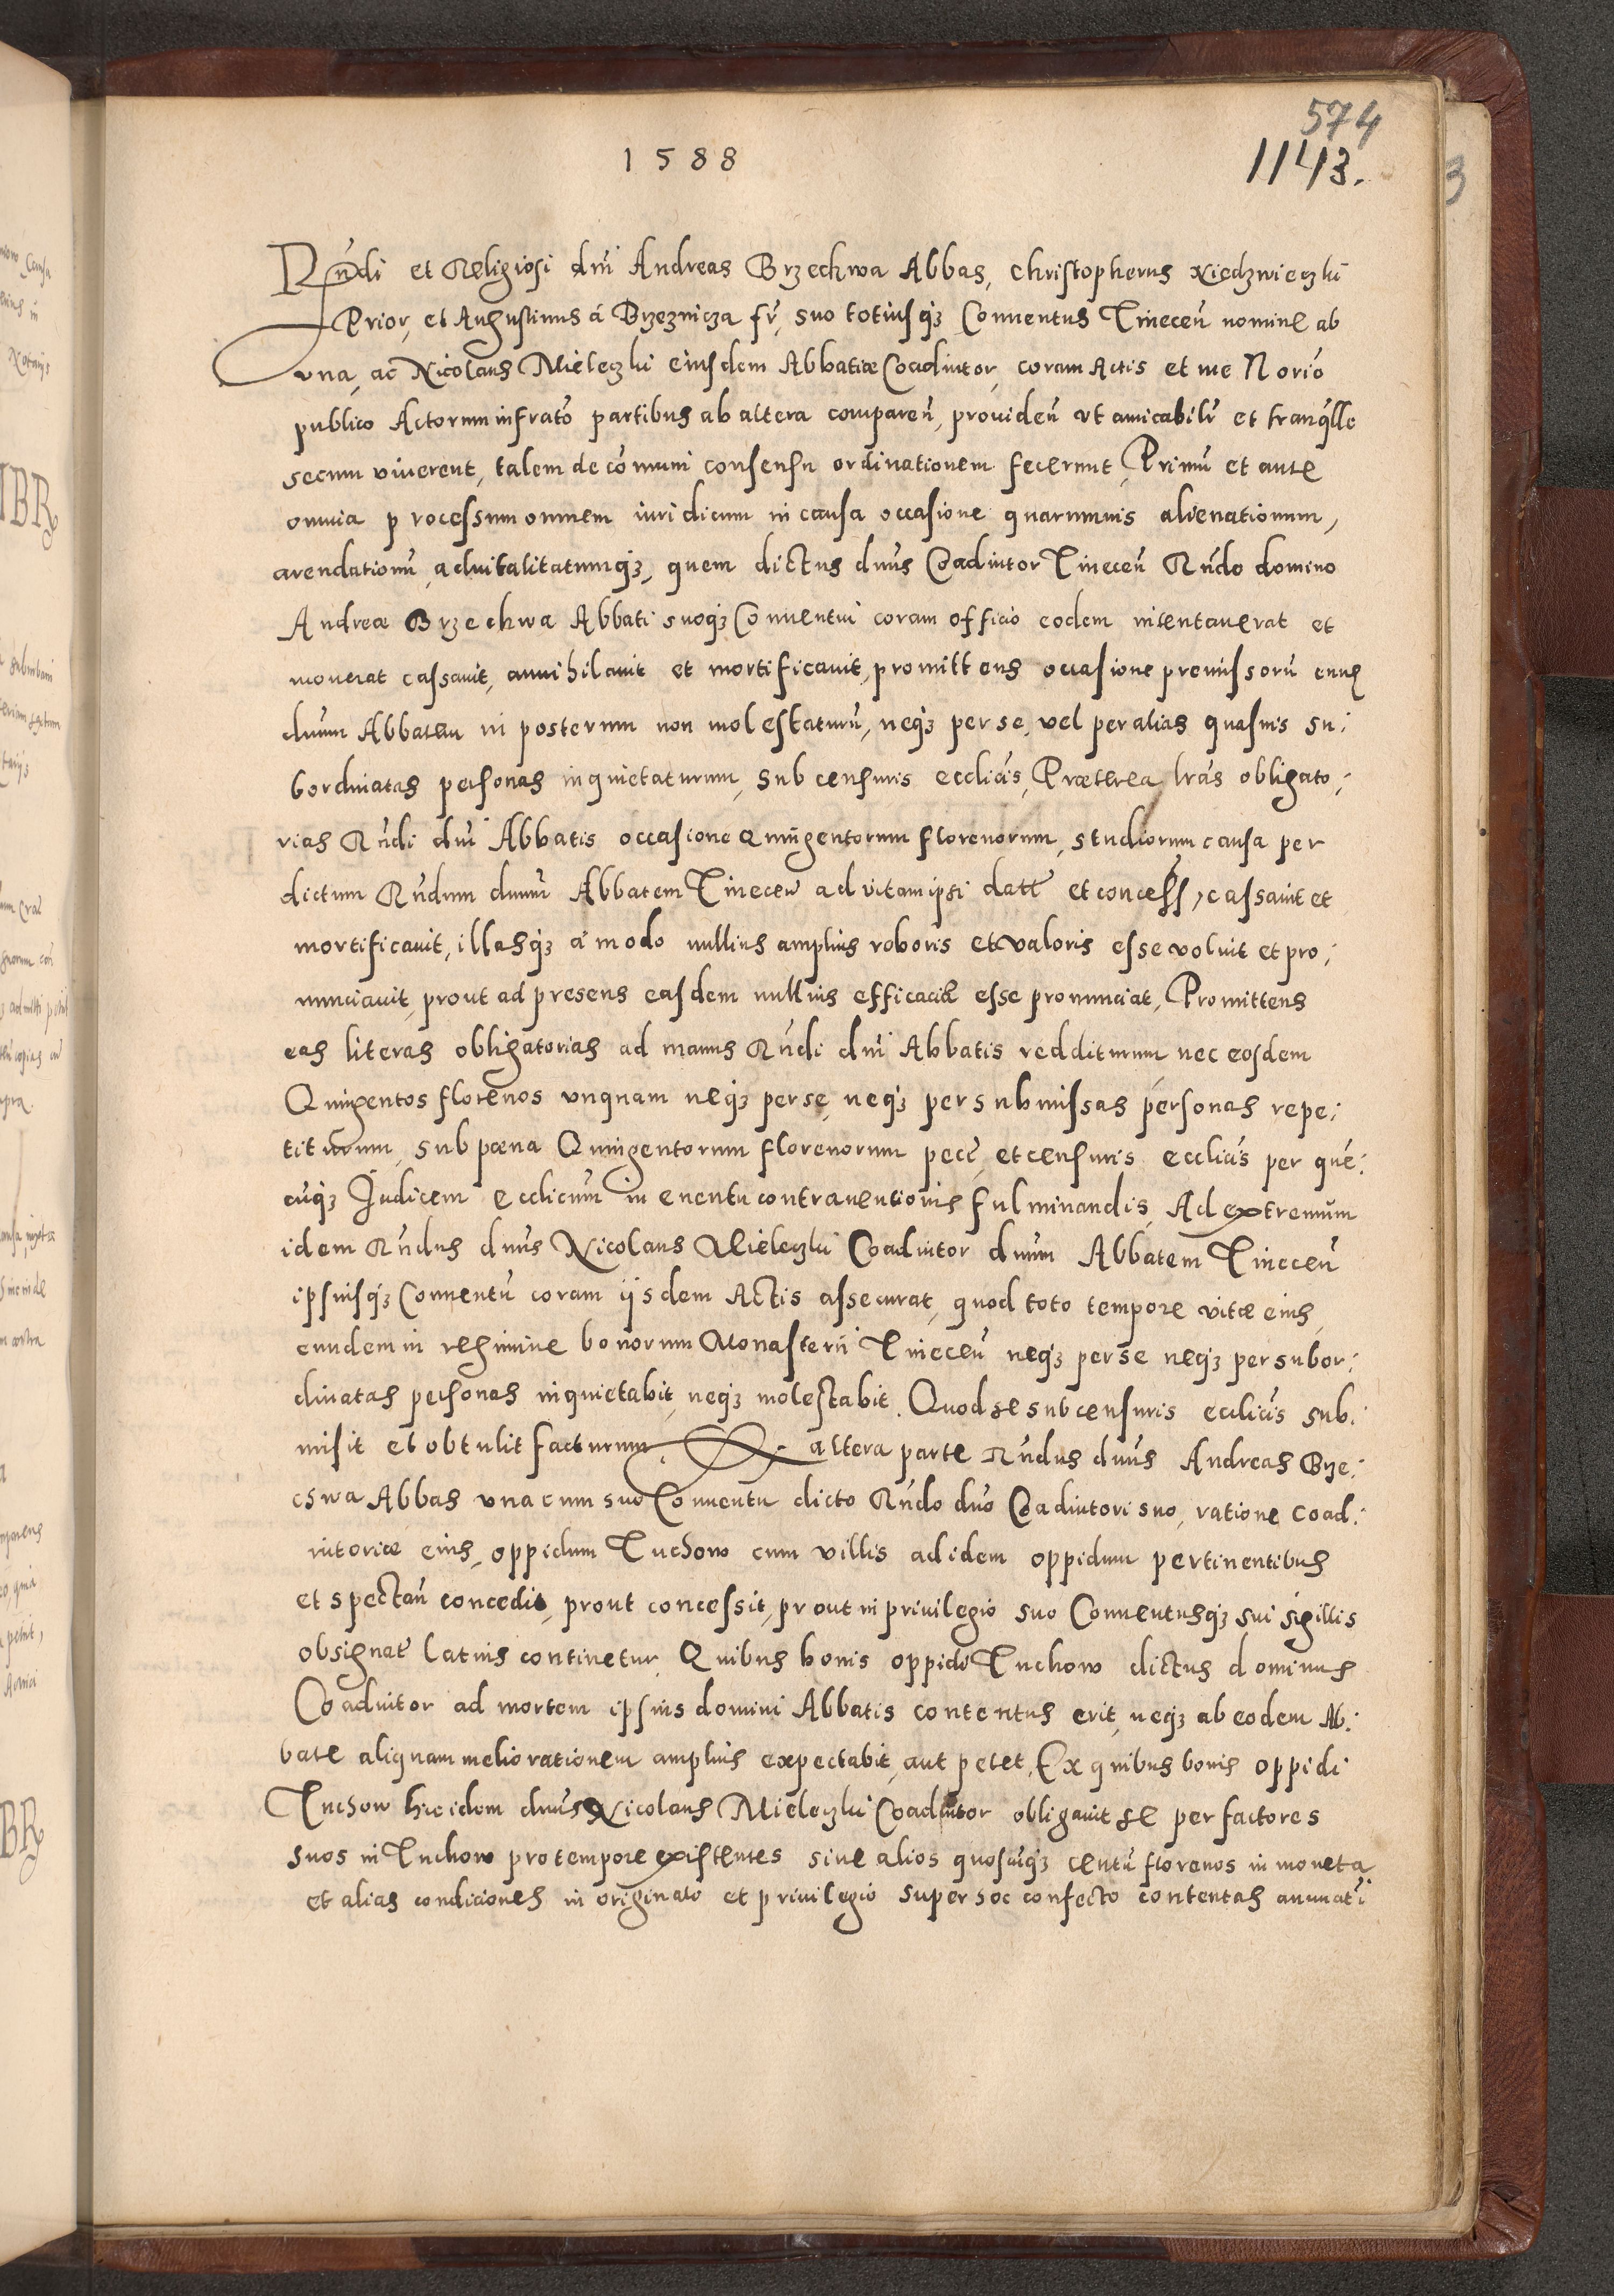 574
1588
1143.
Rndi et Religiosi dni Andreas Brzechwa Abbas, Christopherus Niedzwieczki
Prior, et Augustinus á Brzeznicza fr, suo totiusq3 Conuentus Tinecen̄ nomine ab
vna, ac Nicolaus Mieleczki eiusdem Abbatiæ Coadiutor, coram Actis et me Norio
publico Actorum infrato partibus ab altera comparen̄, prouiden̄ vt amicabilr et tranqlle
secum viuerent, talem de comuni consensu ordinationem fecerunt, Primū et ante
omnia processum omnem iuridicum in causa occasione quarumuis alienationum,
arendationū, aduitalitatumq3, quem dictus dnus Coadiutor Tinecen̄ Rndo domino
Andreæ Brzechwa Abbati suoq3 Conuentui coram officio eodem intentauerat et
mouerat cassauit, annihilauit et mortificauit, promittens occasione premissorū eund
dnum Abbatem in posterum non molestaturū, neq3 per se, vel per alias quasuis su:
bordinatas personas inquietaturum, sub censuris ecclicis, Præterea lras obligato:
rias Rndi dni Abbatis occasione Quingentorum florenorum, studiorum causa per
dictum Rndum dnum Abbatem Tinecen̄ ad vitam ipsi datt et concess, cassauit et
mortificauit, illasq3 á modo nullius amplius roboris et valoris esse voluit et pro:
nunciauit, prout ad presens easdem nullius efficaciæ esse pronunciat, Promittens
eas literas obligatorias ad manus Rndi dni Abbatis redditurum nec eosdem
Quingentos florenos vnquam neq3 per se, neq3 per submissas personas repe:
titurum, sub pœna Quingentorum florenorum pecc, et censuris ecclicis per quē:
cūq3 Judicem ecclicum in euentu contrauentionis fulminandis, Ad extremum
idem Rndus dnus Nicolaus Mieleczki Coadiutor dnum Abbatem Tinecen̄
ipsiusq3 Conuentū coram ijsdem Actis assecurat, quod toto tempore vitæ eius,
eundem in regimine bonorum Monasterii Tinecen̄ neq3 per se neq3 per subor:
dinatas personas inquietabit, neq3 molestabit. Quod se sub censuris ecclicis sub:
misit et obtulit facturum. altera parte Rndus dnus Andreas Brze:
cswa Abbas vna cum suo Conuentu dicto Rndo dno Coadiutori suo, ratione Coad:
iutoriæ eius, oppidum Tuchow cum villis ad idem oppidum pertinentibus
et spectan̄ concedit, prout concessit, prout in priuilegio suo Conuentusq3 sui sigillis
obsignat latius continetur. Quibus bonis oppidi Tuchow dictus dominus
Coadiutor ad mortem ipsius domini Abbatis contentus erit, neq3 ab eodem Ab:
bate aliquam meliorationem amplius expectabit, aut petet, Ex quibus bonis oppidi
Tuchow hic idem dnus Nicolaus Mieleczki Coadiutor obligauit se per factores
suos in Tuchow pro tempore existentes siue alios quoscūq3 centū florenos in moneta
et alias condiciones in originato et priuilegio super soc confecto contentas annuati